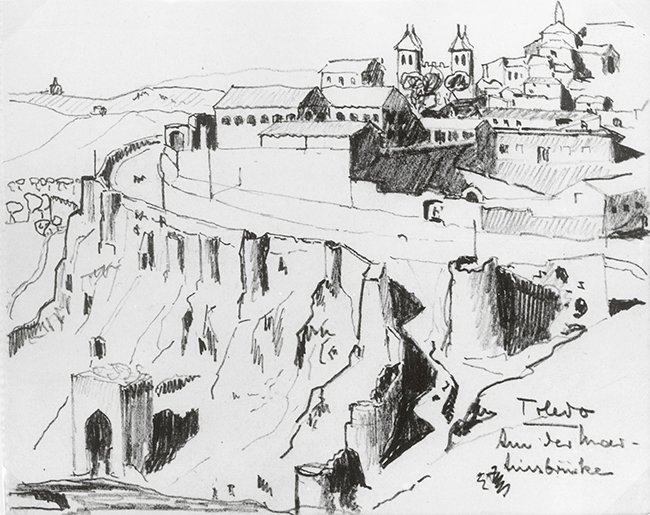 Toledo
An der Mar-
tinsbrücke